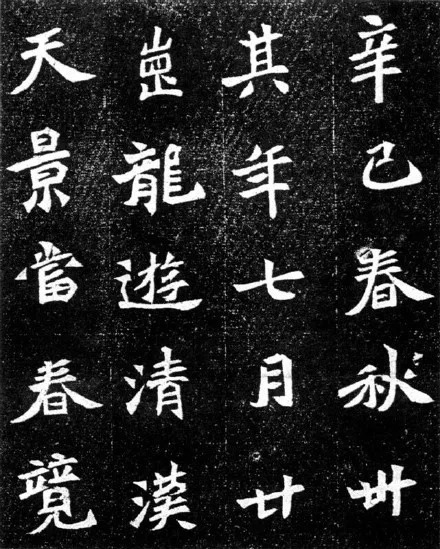 辛巳春秋卅
其年七月廿
𡴭龍遊清漢
天景當春競